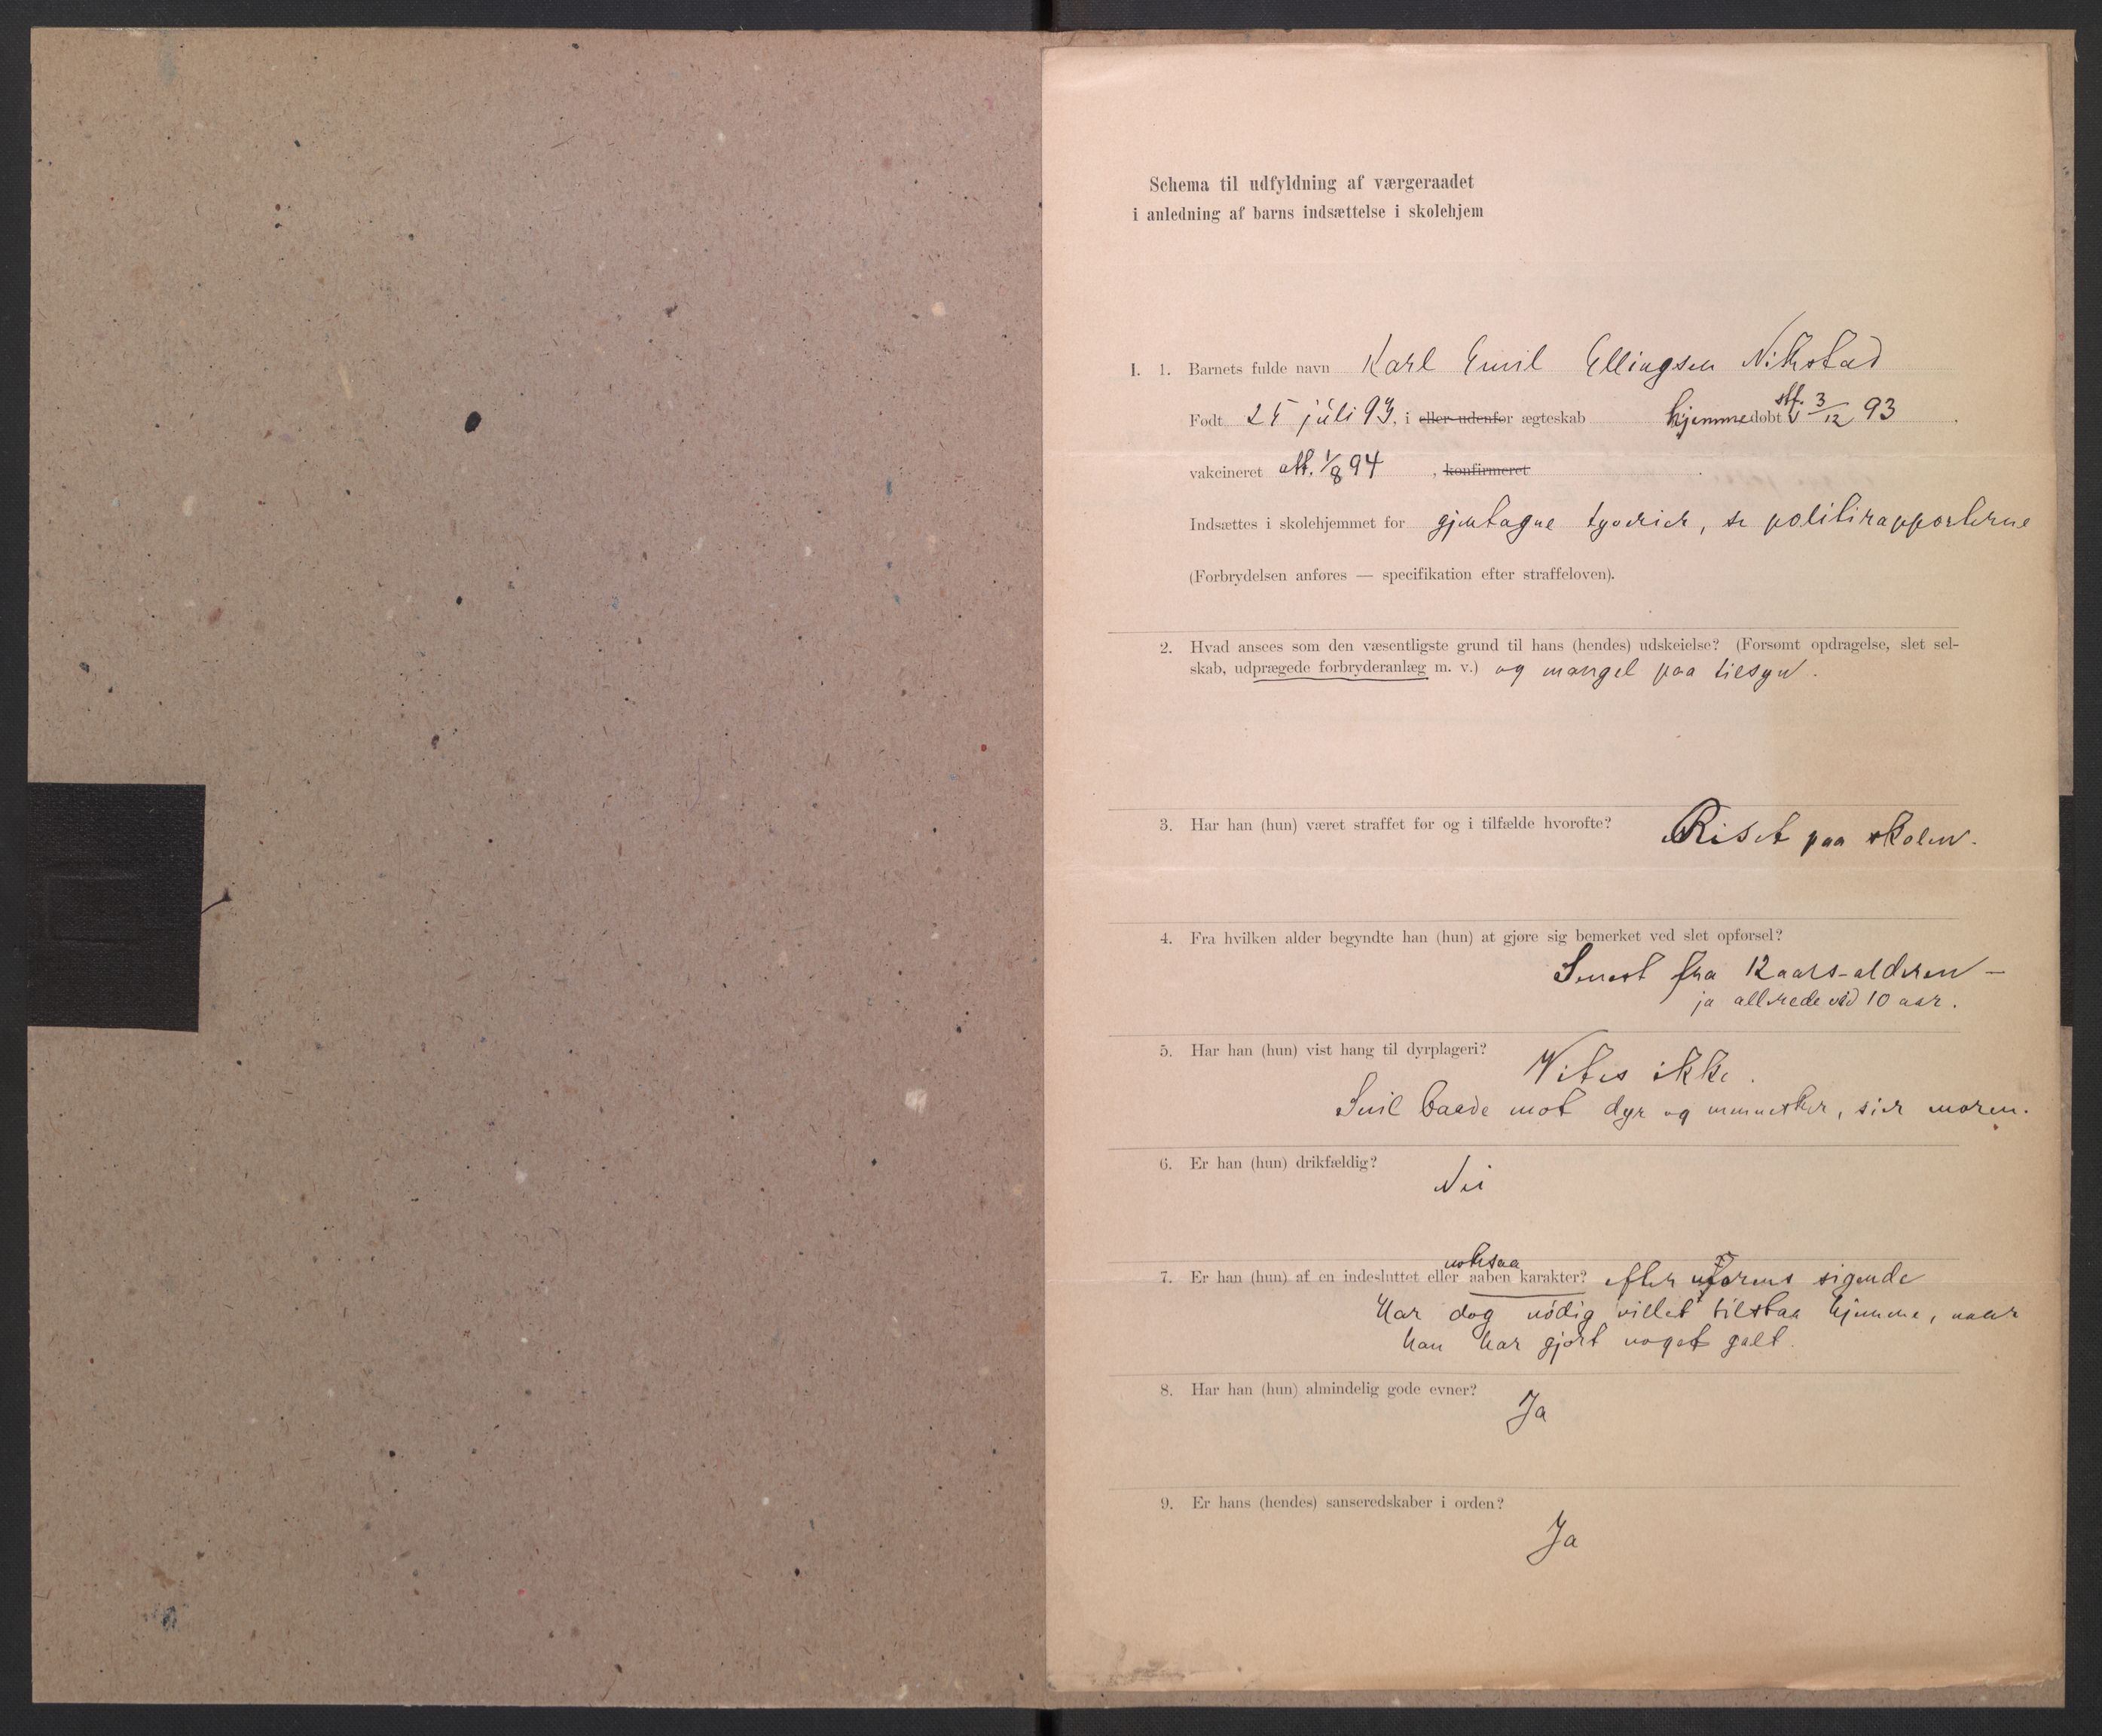 Schema til udfyldning af værgeraadet
i anledning af barns indsættelse i skolehjem
I. 1. Barnets fulde navn Karl Emil Ellingsen Nikstad
Født 25 juli 93, i eller udenfor ægteskab hjemmedøbt stf. 3/12 93
vakcineret att. 1/8 94 , konfirmeret
Indsættes i skolehjemmet for gjentagne tyverier, se politirapporterne
(Forbrydelsen anføres — specifikation efter straffeloven).
2. Hvad ansees som den væsentligste grund til hans (hendes) udskeielse? (Forsømt opdragelse, slet sel-
skab, udprægede forbryderanlæg m. v.) og mangel paa tilsyn.
3. Har han (hun) været straffet før og i tilfælde hvorofte? Riset paa skolen.
4. Fra hvilken alder begyndte han (hun) at gjøre sig bemerket ved slet opførsel?
Senest fra 12 aars-alderen —
ja allerede ved 10 aar.
5. Har han (hun) vist hang til dyrplageri?
Vites ikke.
Snil baade mot dyr og mennesker, sier moren.
6. Er han (hun) drikfældig?
Nei
noksaa
7. Er han (hun) af en indesluttet eller aaben karakter? efter sigende
Har dog nödig villet tilstaa hjemme, naar
han har gjort noget galt.
8. Har han (hun) almindelig gode evner?
Ja
9. Er hans (hendes) sanseredskaber i orden?
Ja